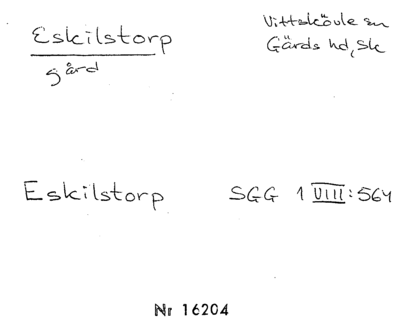 Eskilstorp
gård
Vittskövle sn
Gärds hd, Sk
Eskilstorp
SGG 1 VIII:564
Nr 16204